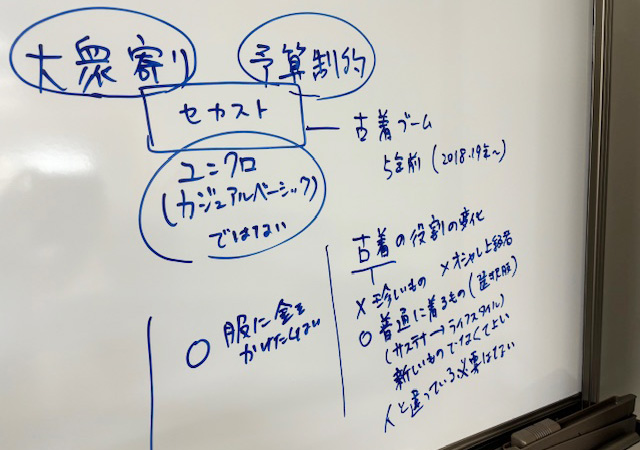 大衆寄り
予算制約
セカスト
古着ブーム
5年前 (2018.19年〜)
ユニクロ
(カジュアルベーシック)
ではない
古着の役割の変化
× 珍しいもの × オシャレ上級者
○ 普通に着るもの (選択肢)
(サステナ → ライフスタイル)
新しいものでなくてよい
人と違っている必要はない
○ 服に金を
かけたくない